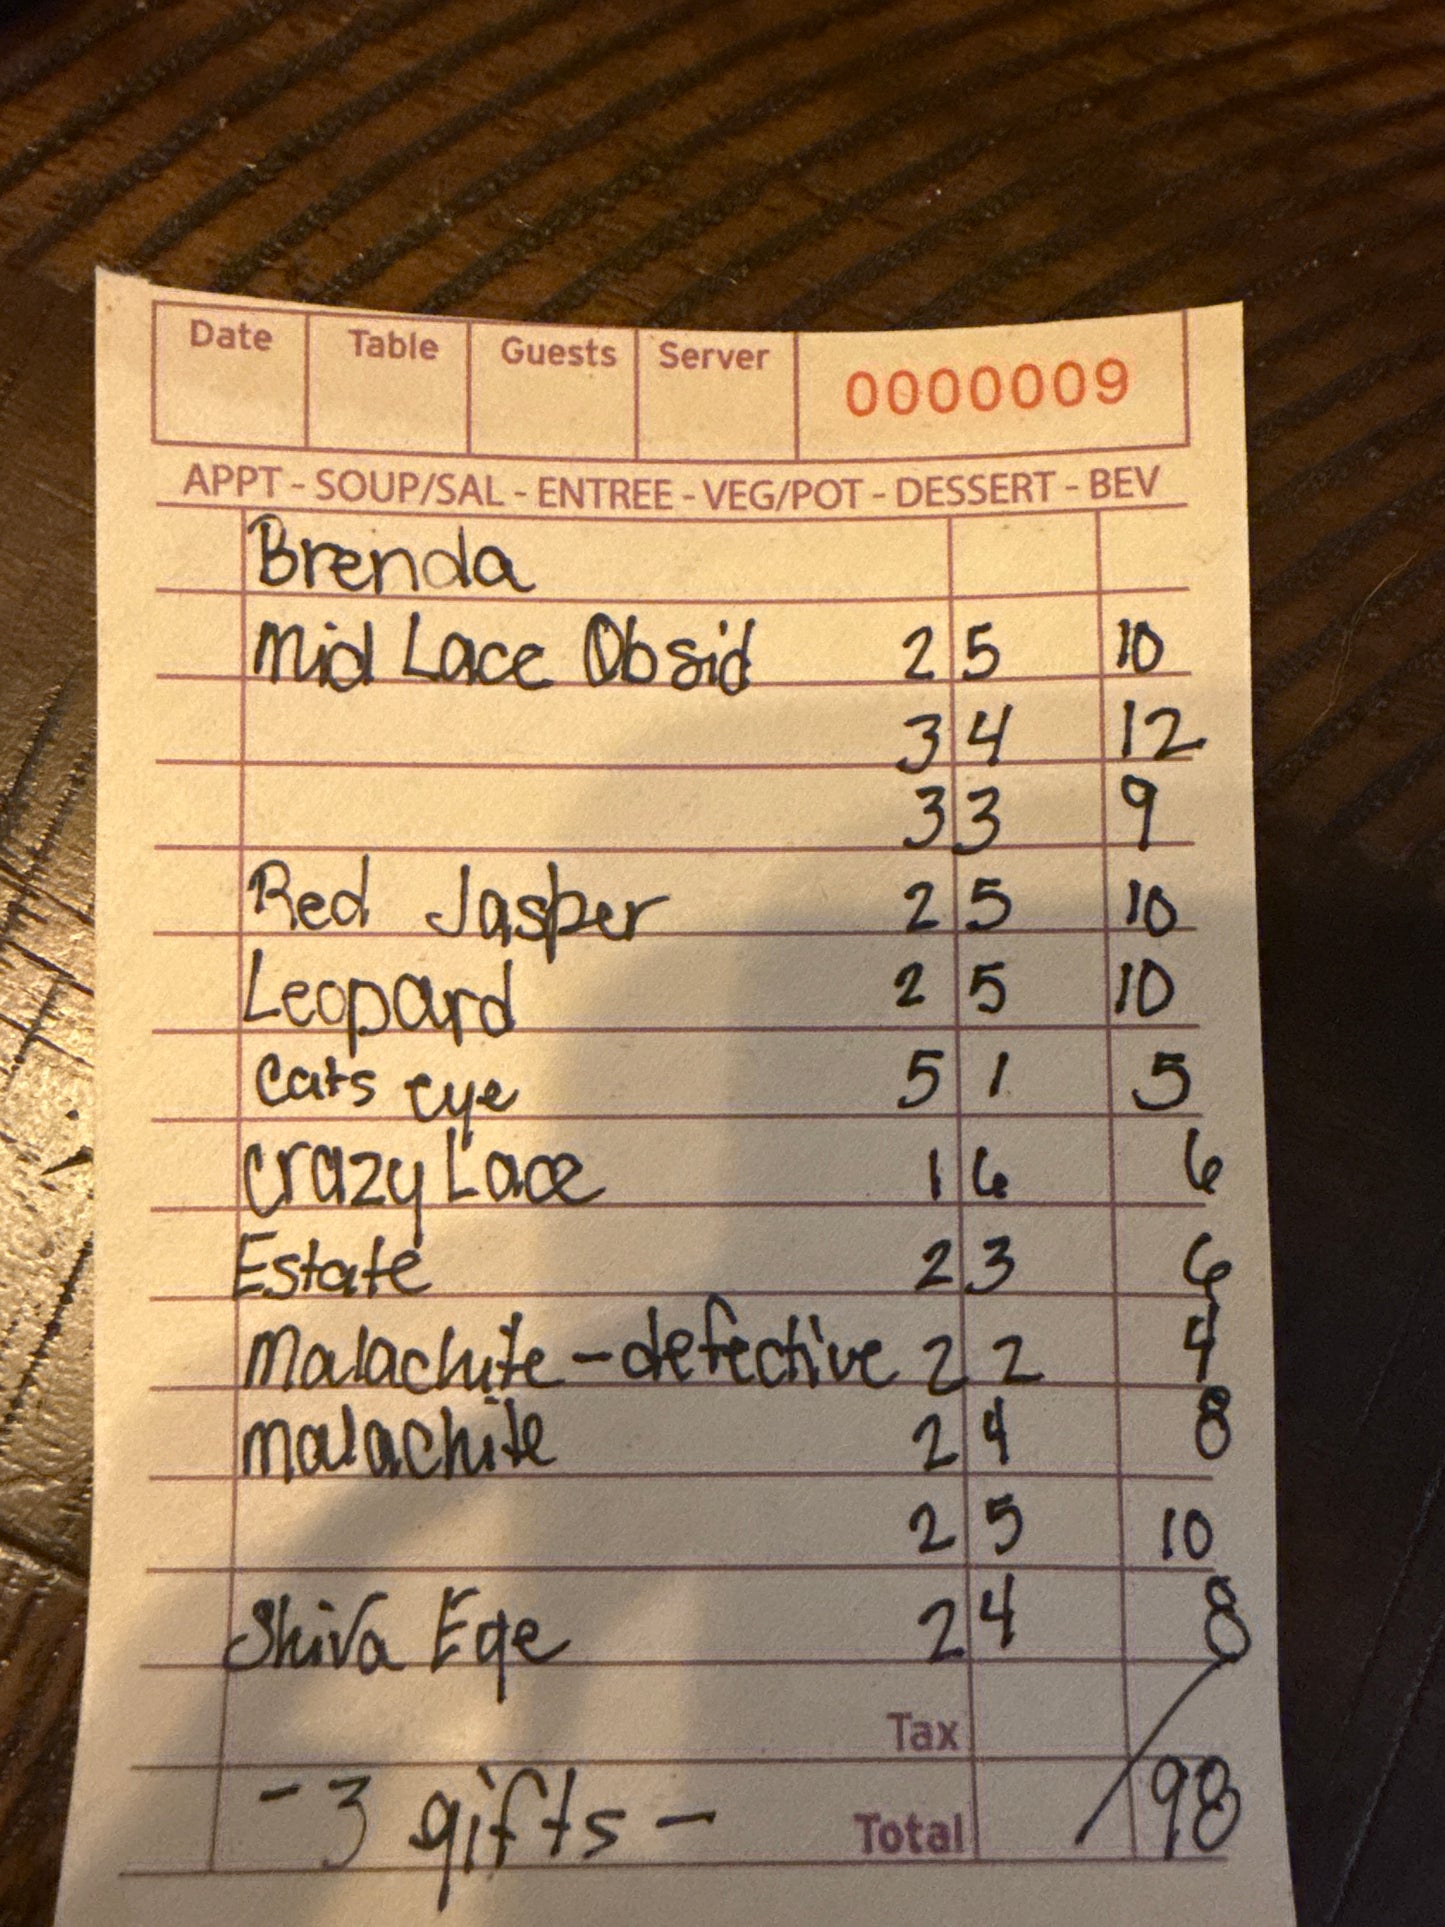 Date Table Guests Server 0000009
APPT - SOUP/SAL - ENTREE - VEG/POT - DESSERT - BEV
Brenda
Mid Lace Obsid 2 5 10
3 4 12
3 3 9
Red Jasper 2 5 10
Leopard 2 5 10
Cats eye 5 1 5
Crazy Lace 1 6 6
Estate 2 3 6
Malachite - defective 2 2 4
Malachite 2 4 8
2 5 10
Shiva Eye 2 4 8
Tax
- 3 gifts - Total 98